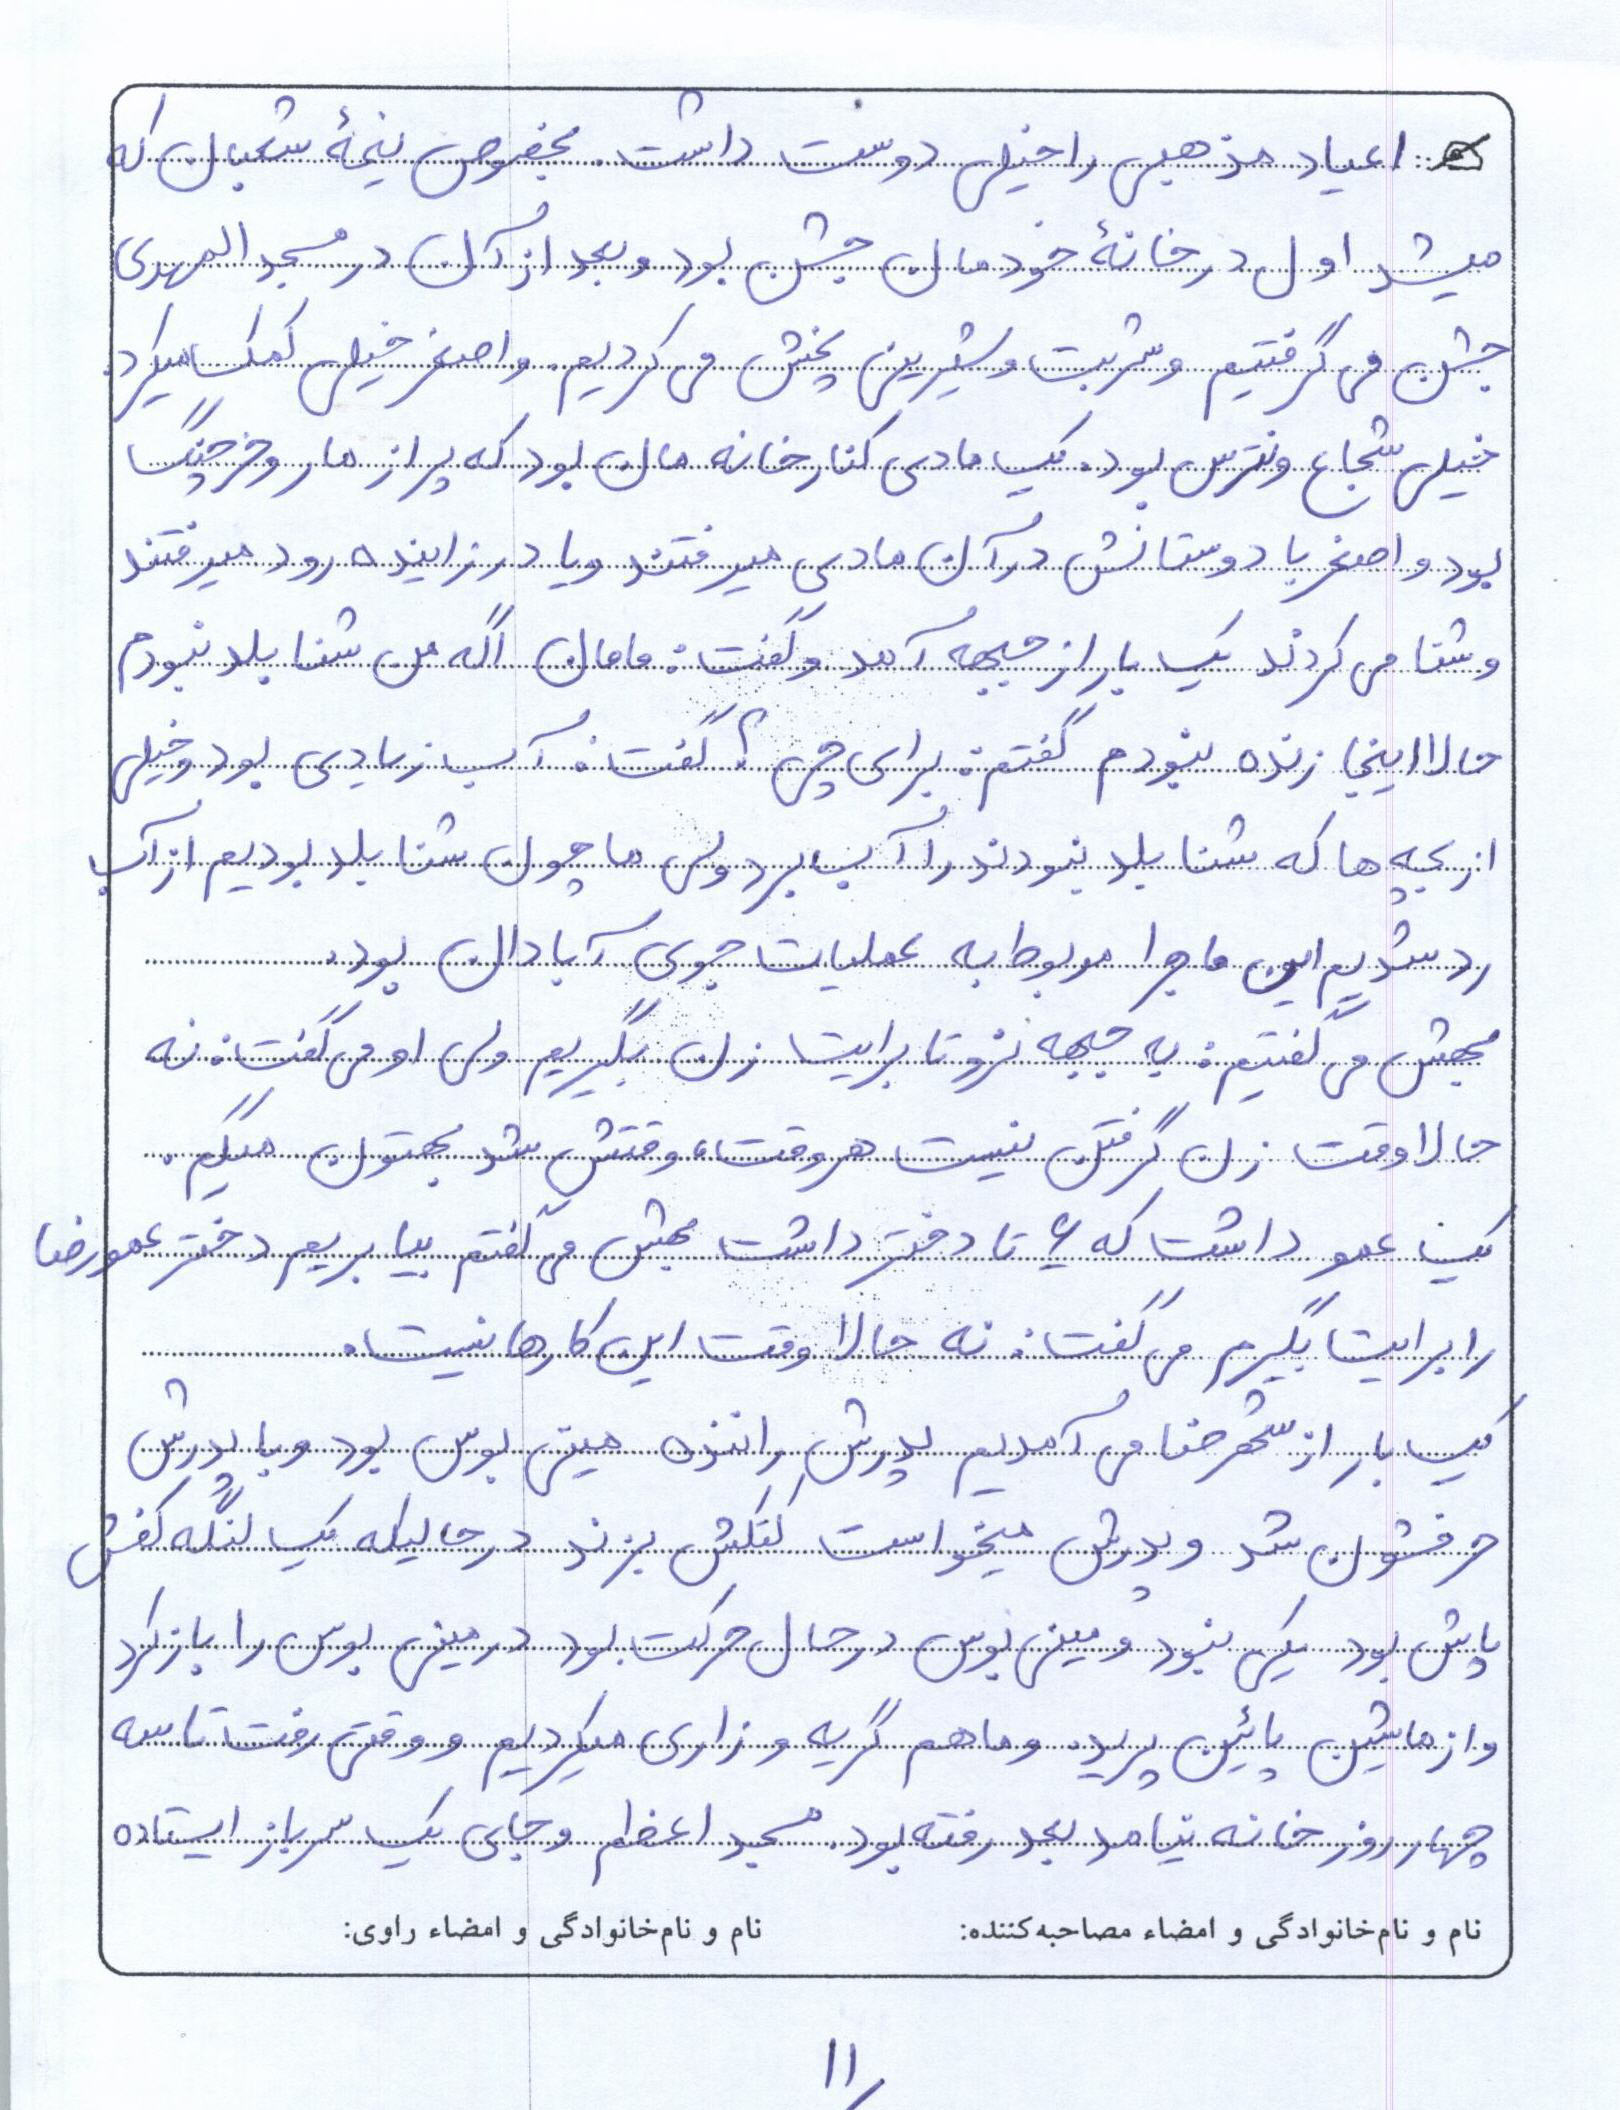 اعیاد مذهبی را خیلی دوست داشت. بخصوص نیمهٔ شعبان که
میشد اول در خانهٔ خودمان جشن بود و بعد از آن در مسجد المهدی
جشن می گرفتیم و شربت و شیرینی پخش می کردیم. و اصغر خیلی کمک میکرد.
خیلی شجاع و نترس بود. یک مادی کنار خانه مان بود که پر از مار و خرچنگ
بود و اصغر با دوستانش در آن مادی میرفتند و یا در زاینده رود میرفتند
و شنا می کردند یک بار از جبهه آمد و گفت: مامان اگه من شنا بلد نبودم
حالا اینجا زنده نبودم گفتم: برای چی؟ گفت: آب زیادی بود و خیلی
از بچه ها که شنا بلد نبودند را آب برد ولی ما چون شنا بلد بودیم از آب
رد شدیم این ماجرا مربوط به عملیات جوی آبادان بود.
بهش می گفتیم: به جبهه نرو تا برایت زن بگیریم ولی او می گفت: نه
حالا وقت زن گرفتن نیست هر وقت، وقتش شد بهتون میگم.
یک عمو داشت که ۶ تا دختر داشت بهش می گفتم بیا بریم دختر عمو رضا
را برایت بگیرم می گفت: نه حالا وقت این کارها نیست.
یک بار از شهرضا می آمدیم پدرش راننده مینی بوس بود و با پدرش
حرفشون شد و پدرش میخواست کتکش بزند در حالیکه یک لنگه کفش
پاش بود یکی نبود و مینی بوس در حال حرکت بود در مینی بوس را باز کرد
و از ماشین پائین پرید. و ما هم گریه و زاری میکردیم و وقتی رفت تا سه
چهار روز خانه نیامد بعد رفته بود. مسجد اعظم و جای یک سرباز ایستاده
نام و نام‌خانوادگی و امضاء مصاحبه‌کننده: نام و نام‌خانوادگی و امضاء راوی:
۱۱